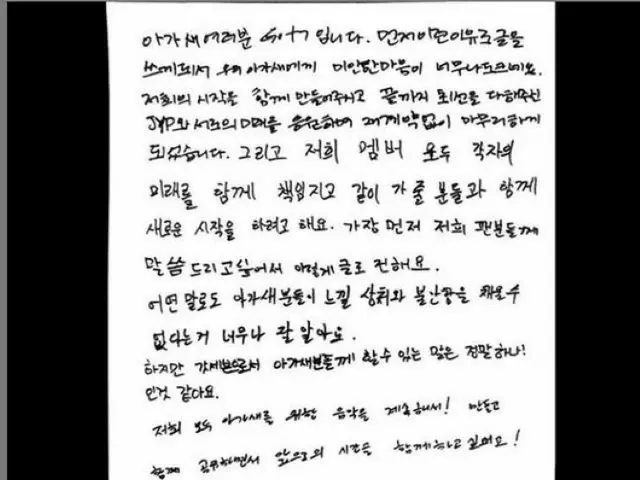 아가새 여러분 Got7 입니다. 먼저 이런 이유로 글을
쓰게 되서 우리 아가새에게 미안한 마음이 너무나도 크네요.
저희의 시작을 함께 만들어주시고 끝까지 최선을 다해주신
JYP와 서로의 미래를 응원하며 재계약 없이 마무리하게
되었습니다. 그리고 저희 멤버 모두 각자의
미래를 함께 책임지고 같이 가 줄 분들과 함께
새로운 시작을 하려고 해요. 가장 먼저 저희 팬분들께
말씀 드리고 싶어서 이렇게 글로 전해요.
어떤 말로도 아가새분들이 느낄 상처와 불안감을 채울 수
없다는 거 너무나 잘 알아요.
하지만 갓세븐으로서 아가새분들께 할 수 있는 말은 정말 하나!
인것 같아요.
저희 모두 아가새를 위한 음악을 계속해서! 만들고
함께 공유하면서 앞으로의 시간을 함께하고 싶어요!